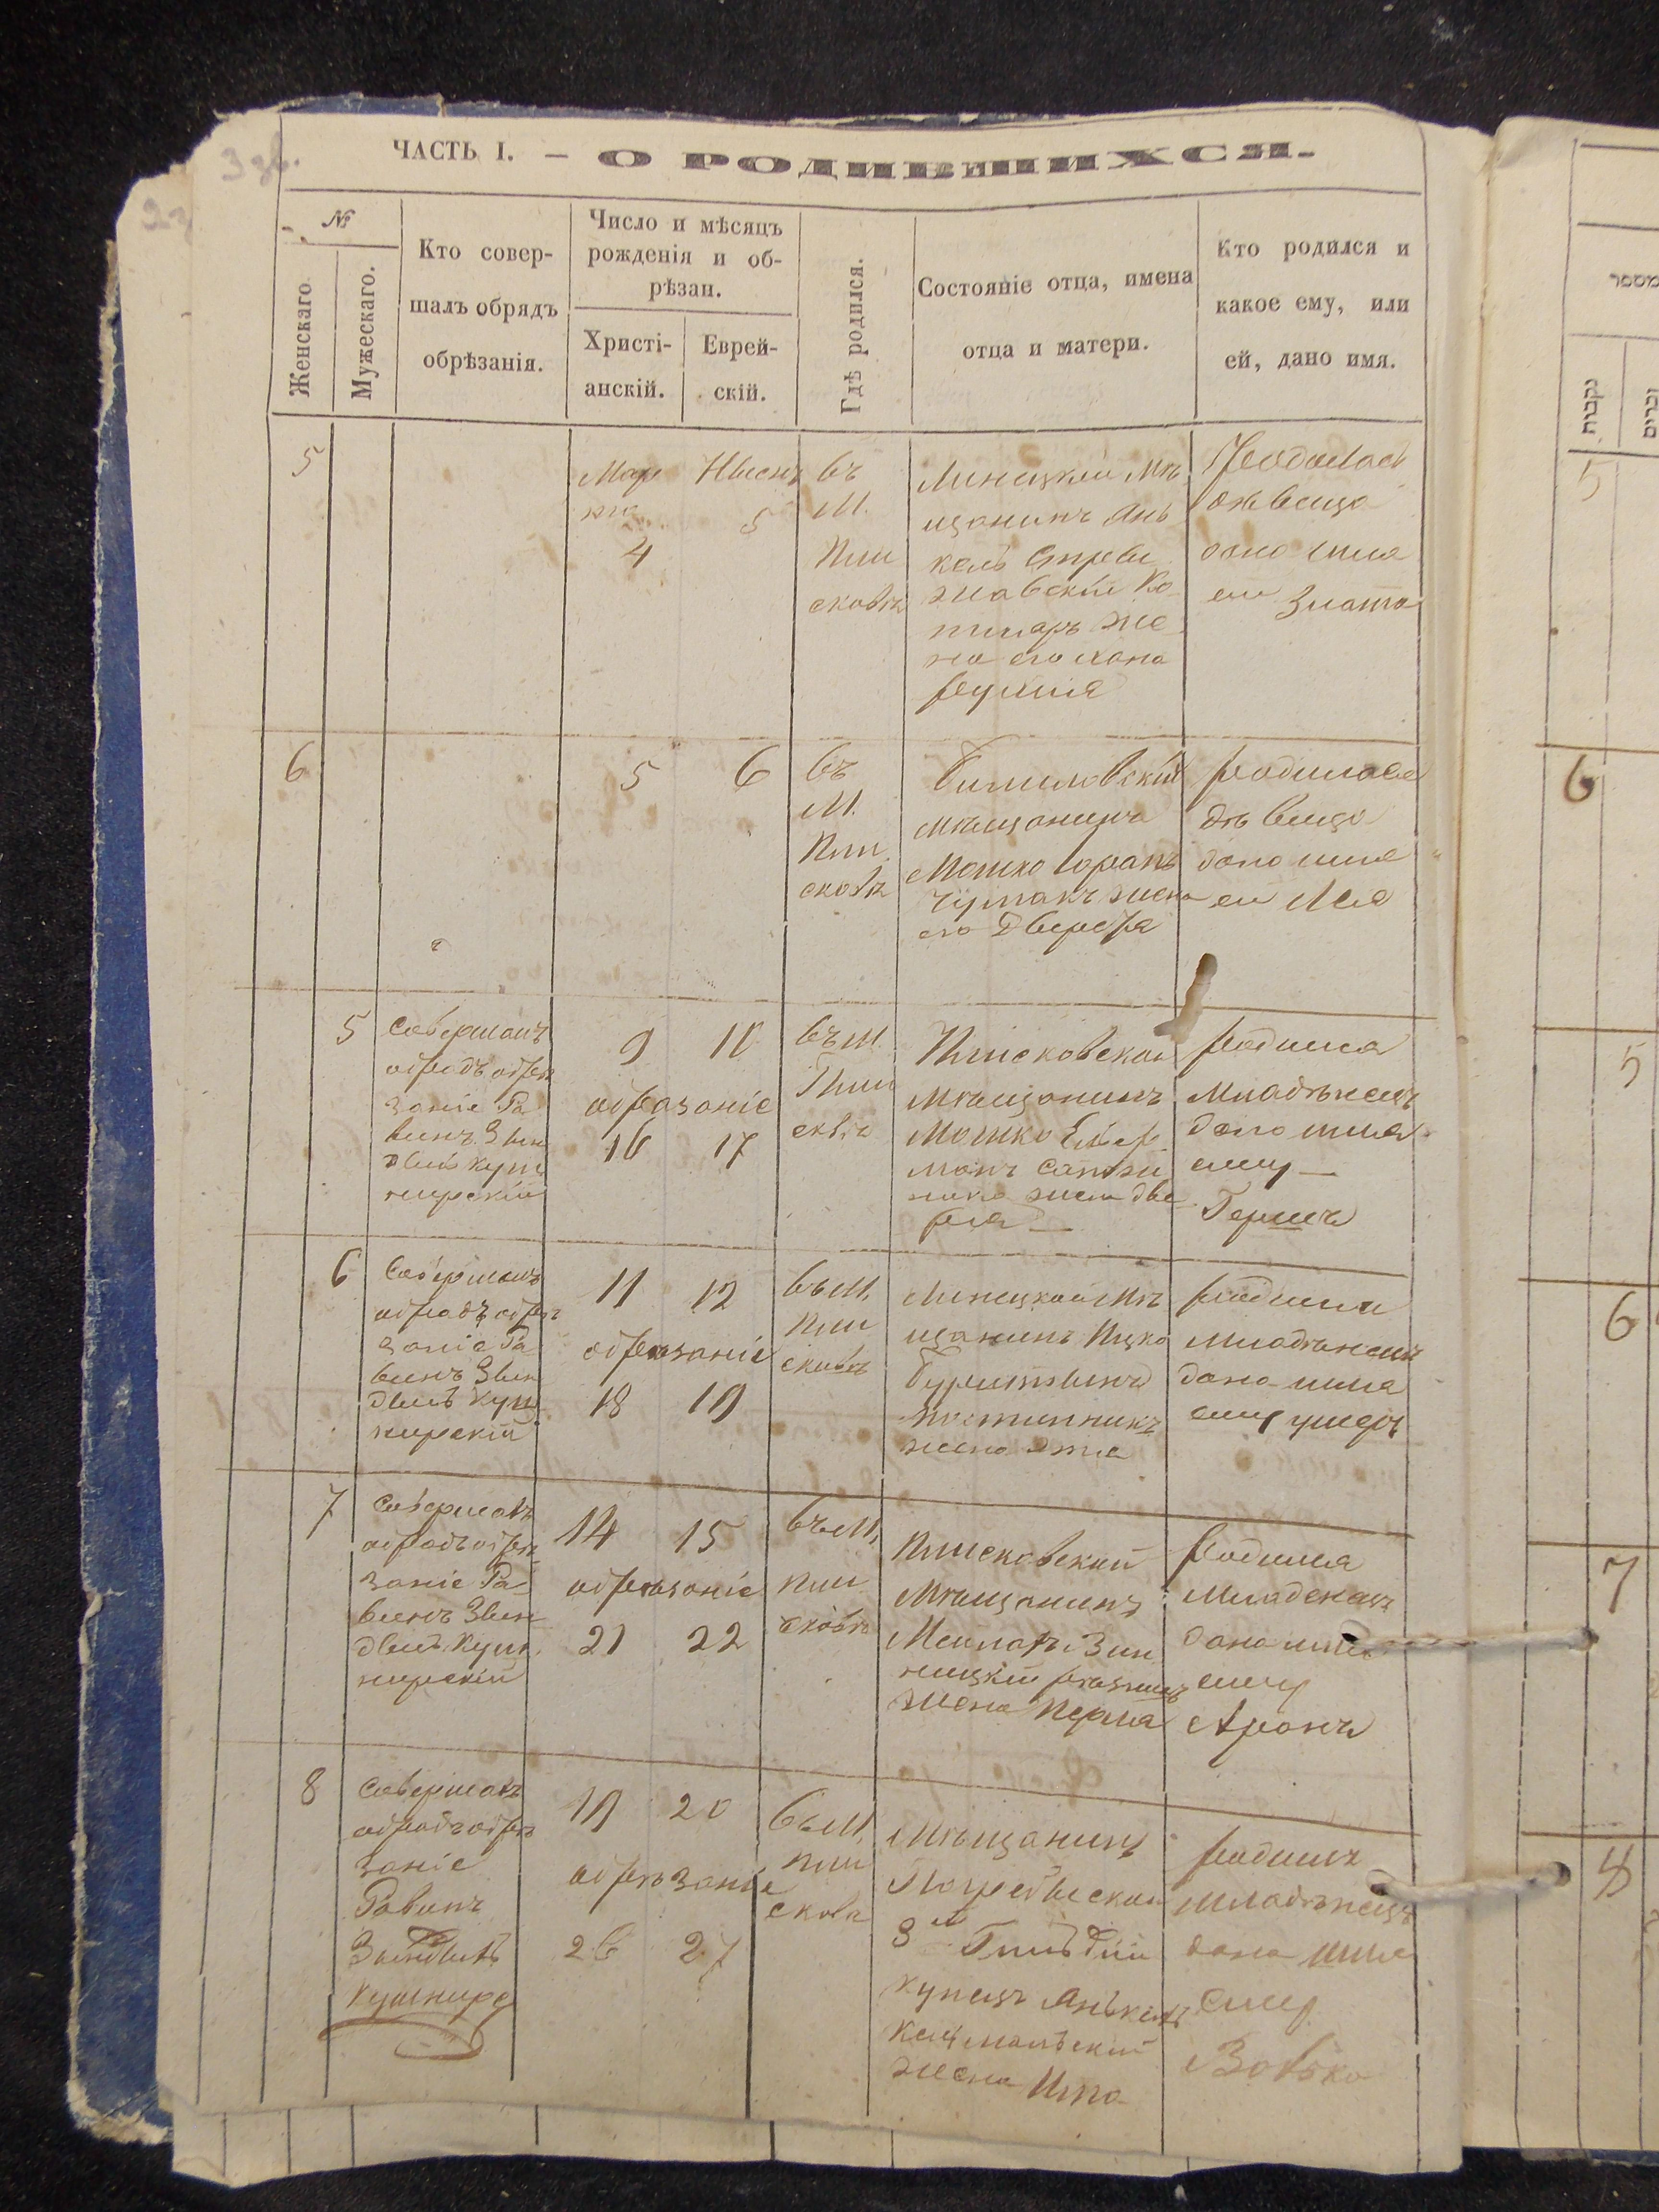 3 зв.
ЧАСТЬ I. — О РОДИВШИХСЯ.
№
Женскаго
Мужескаго.
Кто совер-
шалъ обрядъ
обрѣзанія.
Число и мѣсяцъ
рожденія и об-
рѣзан.
Христі-
анскій.
Еврей-
скій.
Гдѣ родился.
Состояніе отца, имена
отца и матери.
Кто родился и
какое ему, или
ей, дано имя.
5
Мар
та
4
Нисонъ
5
въ
М.
Пии
сковѣ
Линецкий мѣ
щанинъ Янь
кель
жавскій
жe
на его Хана
Родилась
дѣвица
дано имя
ей Злата
6
5
6
въ
М.
Пии
сковѣ
мѣщанинъ
Мошко
Чумакъ жена
его Двера
родилася
дѣвица
дано имя
ей Лея
5
Совершалъ
обрядъ обрѣ
заніе Ра
винъ Зин
двиль Куш
нирскій
9 10
обрезаніе
16 17
въ М.
Пии
сковѣ
Пиисковскій
мѣщанинъ
Мошко
манъ
жена Две
родился
младѣнецъ
дано имя
ему —
Гершъ
6
Совершалъ
обрядъ обрѣ
заніе Ра
винъ Зин
двиль Куш
нирскій
11 12
обрезаніе
18 19
въ М.
Пии
сковѣ
Линецкій мѣ
щанинъ Ицко
жена
родился
младѣнецъ
дано имя
ему Ушеръ
7
Совершалъ
обрядъ обрѣ
заніе Ра
винъ Зин
двиль Куш
нирскій
14 15
обрезаніе
21 22
въ М.
Пии
сковѣ
Пиисковский
мѣщанинъ
Меилахъ Вин
ницкій резникъ
жена Перля
родился
младенецъ
дана имя
ему
Аронъ
8
Совершалъ
обрядъ обрѣ
заніе
Равинъ
Зындвиль
Кушниръ
19 20
обрѣзаніе
26 27
въ М.
Пии
сковѣ
Мѣщанинъ
Погребыскій
3й Гильдіи
купецъ Янькель
жена Ита
родился
младѣнецъ
дана имя
ему
Вовько
מספר
נקבות
זכרים
5
6
5
6
7
8